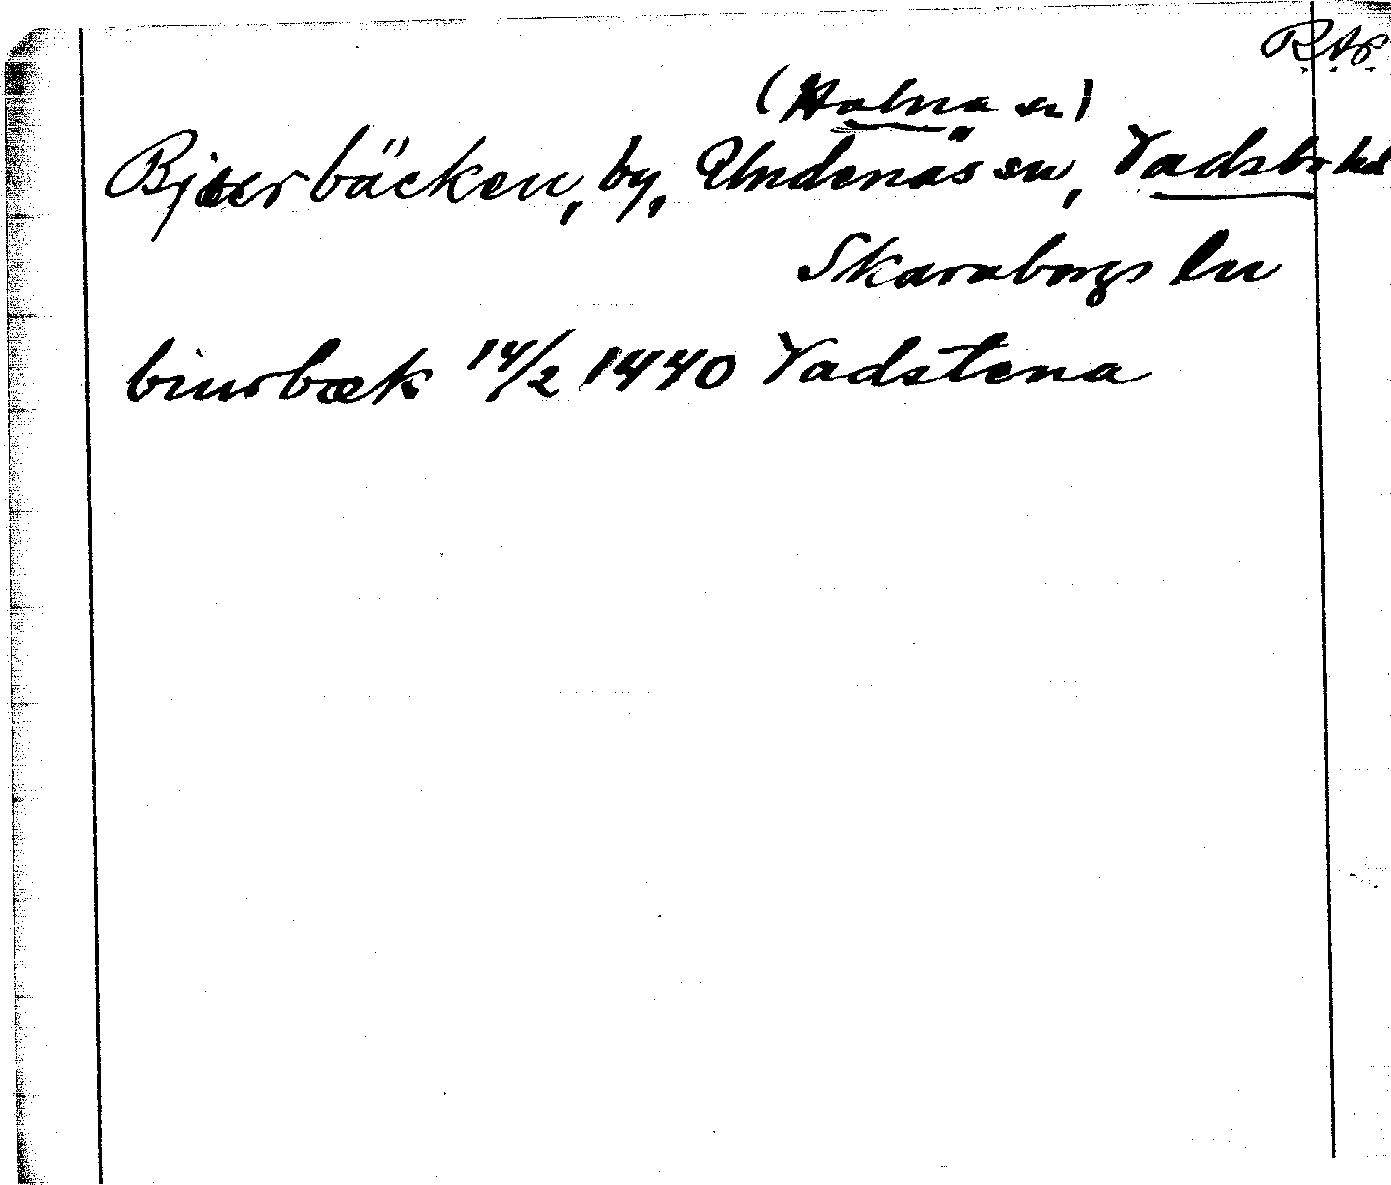 R.A.P.
(Halna sn)
Bjurbäcken, by, Undenäs sn, Vadsbo hd
Skaraborgs ln
biursbæk 14/2 1440 Vadstena